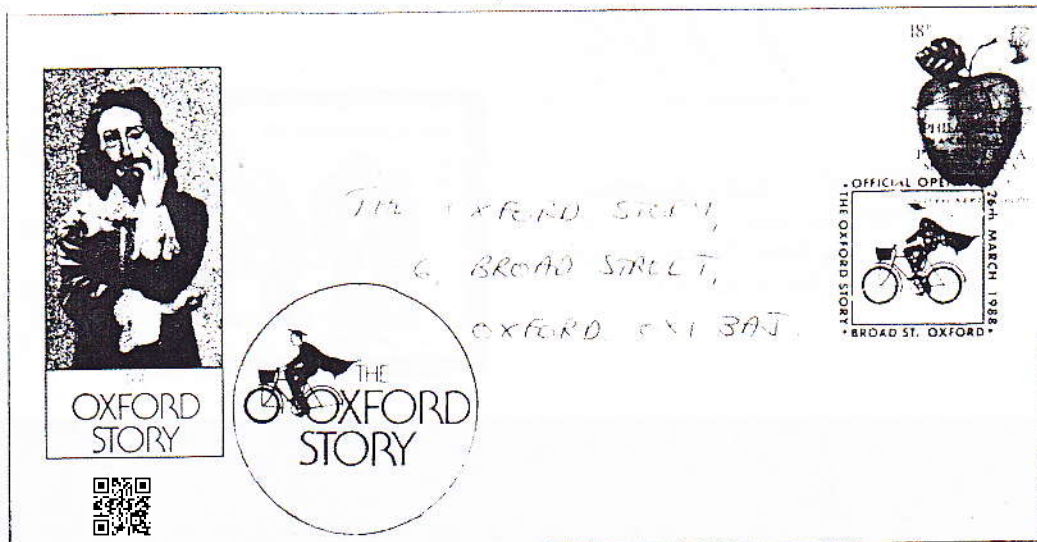 18P
OFFICIAL OPENING
26th MARCH 1988
BROAD ST. OXFORD
THE OXFORD STORY
THE OXFORD STORY,
6 BROAD STREET,
OXFORD OX1 3AJ.
THE
OXFORD
STORY
THE
OXFORD
STORY